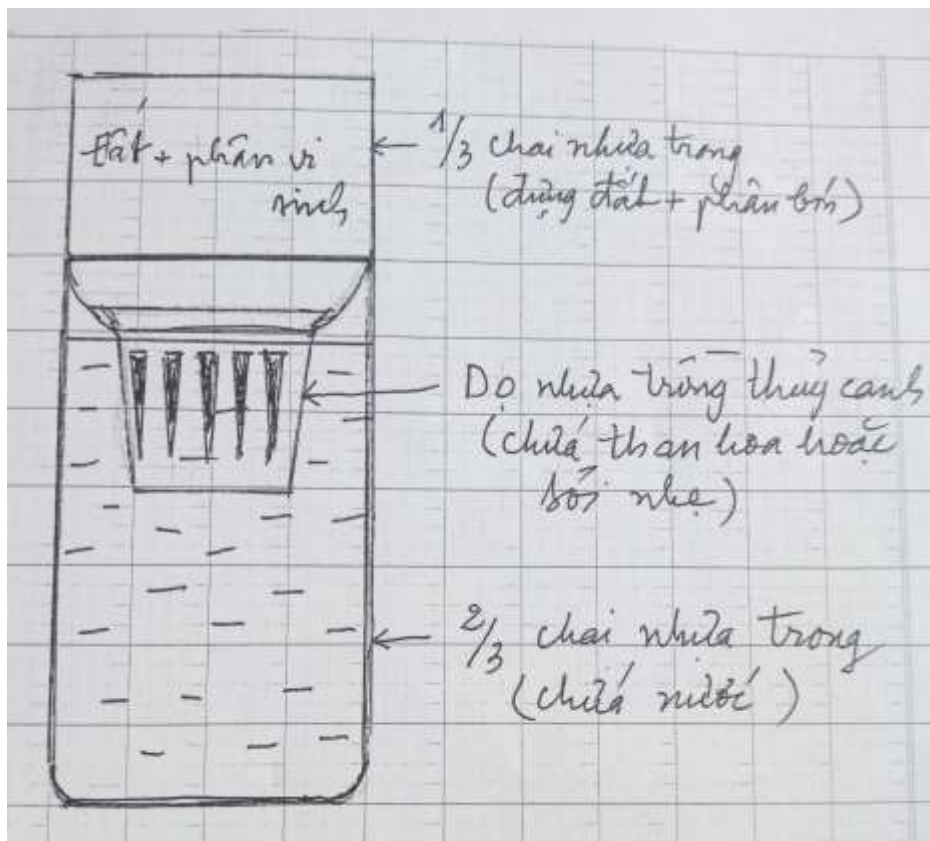 đất + phân vi
sinh
1/3 chai nhựa trong
(đựng đất + phân bón)
Dọ nhựa trồng thủy canh
(chứa than hoa hoặc
sỏi nhẹ)
2/3 chai nhựa trong
(chứa nước)